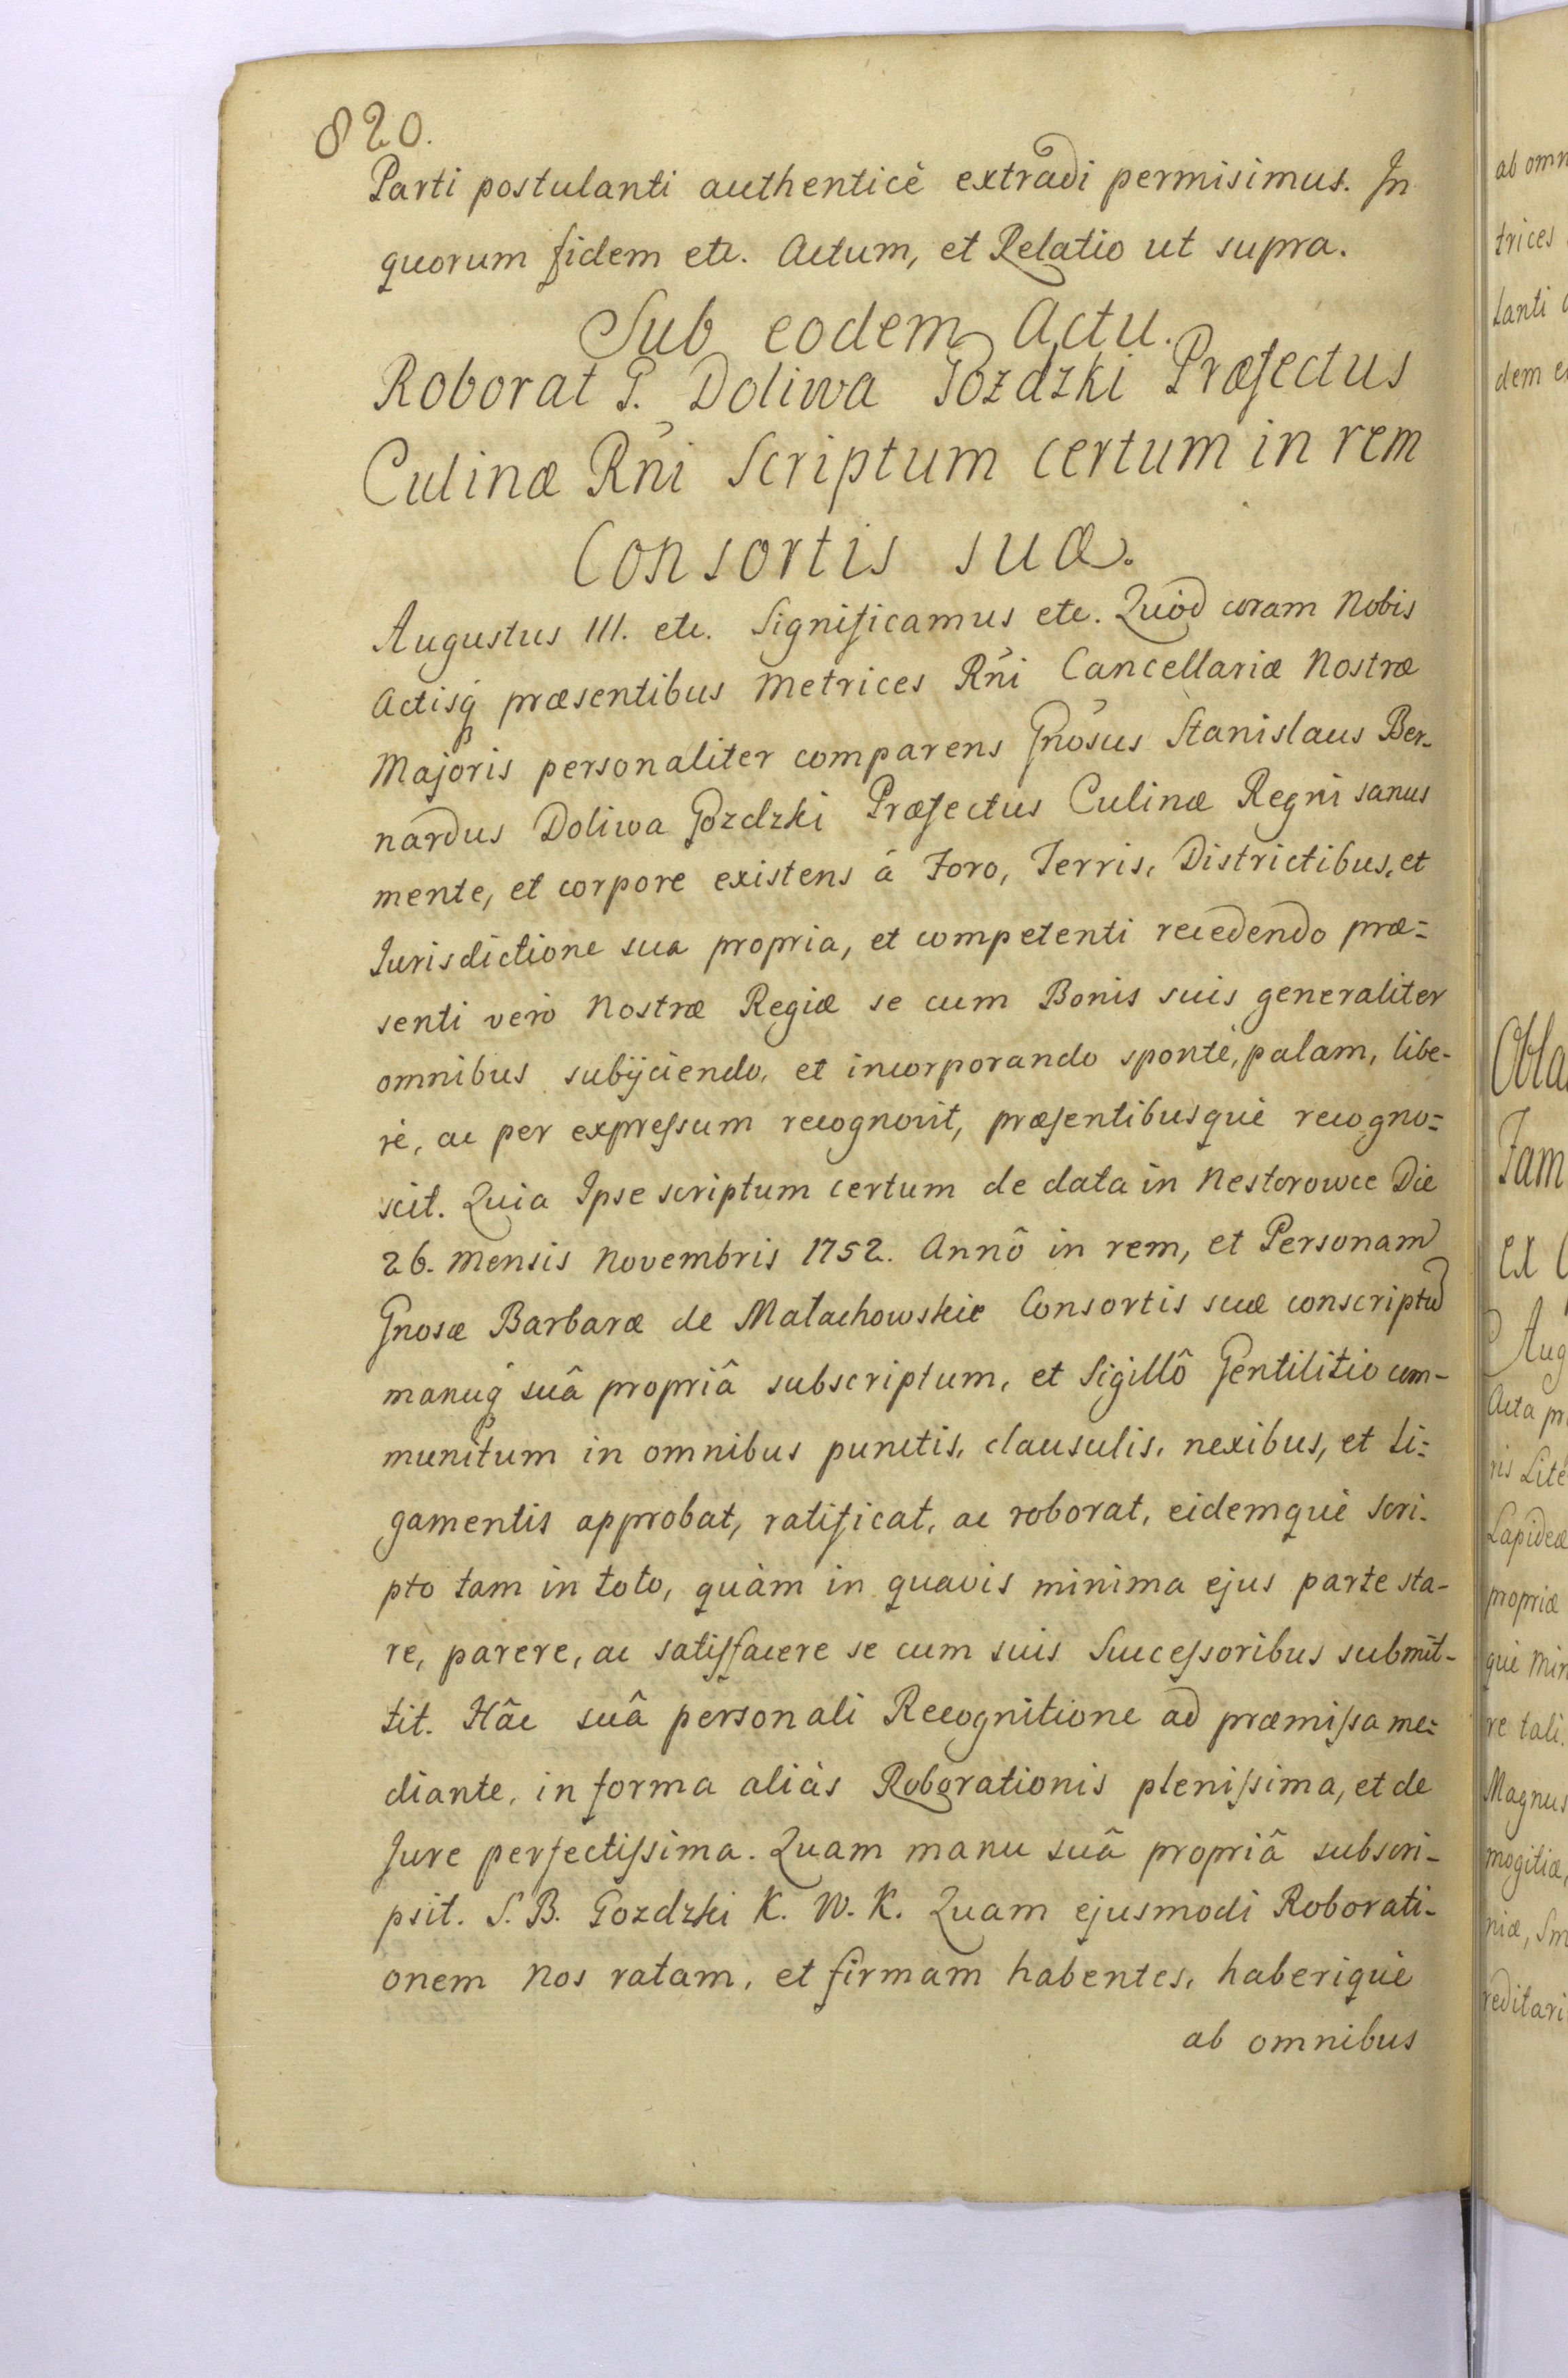 820.
Parti postulanti authenticè extradi permisimus. In
quorum fidem etc. Actum, et Relatio ut supra.
Sub eodem Actu.
Roborat G. Doliwa Gozdzki Præfectus
Culinæ Rñi Scriptum certum in rem
Consortis suæ.
Augustus III. etc. Significamus etc. Quòd coram Nobis
Actisq́ præsentibus Metrices Rñi Cancellariæ Nostræ
Majoris personaliter comparens Gnosus Stanislaus Ber-
nardus Doliwa Gozdzki Præfectus Culinæ Regni sanus
mente, et corpore existens á Foro, Terris, Districtibus, et
Jurisdictione sua propria, et competenti recedendo præ=
senti verò Nostræ Regiæ se cum Bonis suis generaliter
omnibus subijciendo, et incorporando spontè, palam, libe-
rè, ac per expressum recognovit, præsentibusquè recogno=
scit. Quia Ipse scriptum certum de data in Nestorowce Die
26. Mensis Novembris 1752. Annô in rem, et Personam
Gnosæ Barbaræ de Małachowskie Consortis suæ conscriptũ
manuq́ suâ propriâ subscriptum, et Sigillô Gentilitio com-
munitum in omnibus punctis, clausulis, nexibus, et li=
gamentis approbat, ratificat, ac roborat, eidemquè scri-
pto tam in toto, quàm in quavis minima ejus parte sta-
re, parere, ac satisfacere se cum suis Successoribus submit-
tit. Hâc suâ personali Recognitione ad præmissa me=
diante, in forma aliàs Roborationis plenissima, et de
Jure perfectissima. Quam manu suâ propriâ subscri-
psit. S. B. Gozdzki K. W. K. Quam ejusmodi Roborati-
onem Nos ratam, et firmam habentes, haberiquè
ab omnibus
ab omn
trices
lanti
dem e
Obla
Fam
ex
Aug
Acta pr
ris Lite
Lapideæ
propriæ
què Min
re tali.
Magnus
mogitiæ,
niæ, Sm
reditari